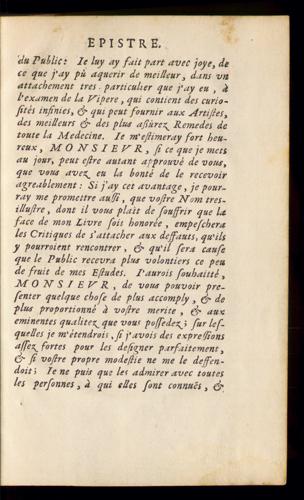 EPISTRE.
du Public: Ie luy ay fait part avec joye, de
ce que j'ay pû aquerir de meilleur, dans vn
attachement tres-particulier que j'ay eu, à
l'examen de la Vipere, qui contient des curio-
sités infinies, & qui peut fournir aux Artistes,
des meilleurs & des plus asûrez Remedes de
toute la Medecine. Ie m'estimeray fort heu-
reux, MONSIEVR, si ce que je mets
au jour, peut estre autant approuvé de vous,
que vous avez eu la bonté de le recevoir
agreablement: Si j'ay cet avantage, je pour-
ray me promettre aussi, que vostre Nom tres-
illustre, dont il vous plait de souffrir que la
face de mon Livre sois honorée, empeschera
les Critiques de s'attacher aux deffauts, qu'ils
y pourroient rencontrer, & qu'il sera cause
que le Public recevra plus volontiers ce peu
de fruit de mes Estudes. I'aurois souhaitté,
MONSIEVR, de vous pouvoir pre-
senter quelque chose de plus accomply, & de
plus proportionné à vostre merite, & aux
eminentes qualitez que vous possedez; sur les-
quelles je m'étendrois, si j'avois des expressions
assez fortes pour les designer parfaitement,
& si vostre propre modestie ne me le deffen-
doit; Ie ne puis que les admirer avec toutes
les personnes, à qui elles sont connuës, &